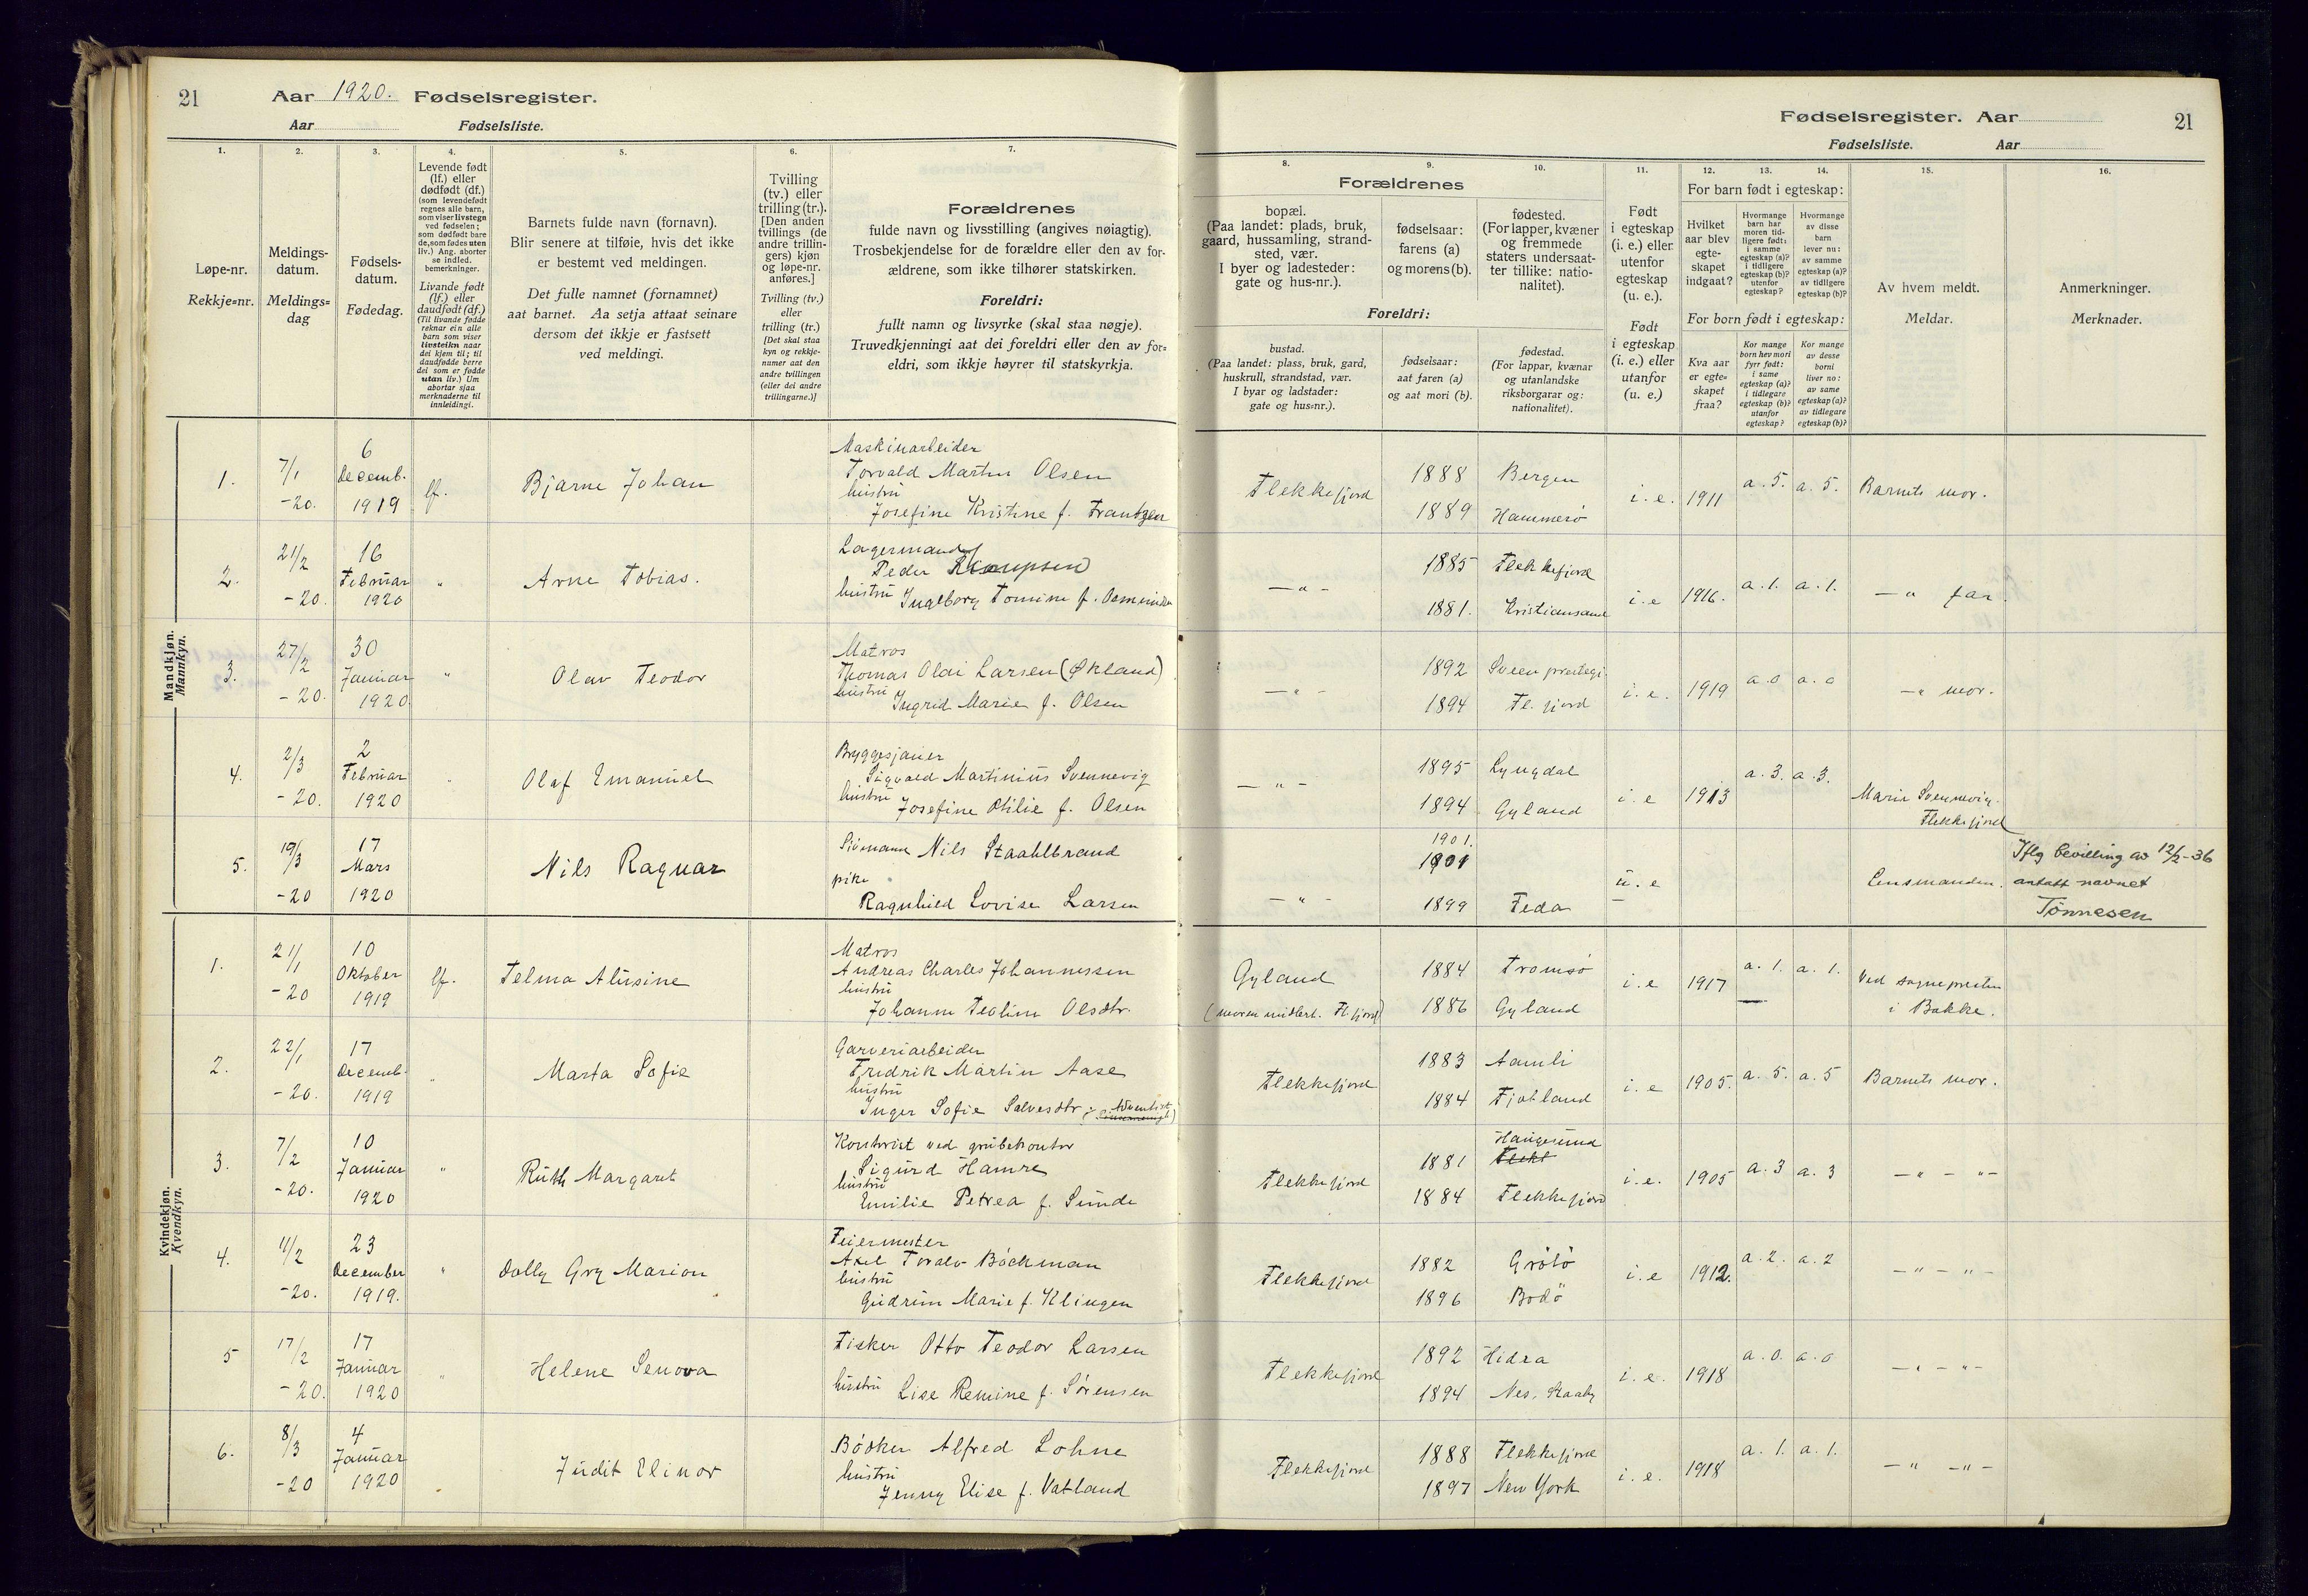 21 Aar 1920. Fødselsregister.
Aar Fødselsliste.
Fødselsregister. Aar 21
Fødselsliste. Aar
1. 2. 3. 4. 5. 6. 7. 8. 9. 10. 11. 12. 13. 14. 15. 16.
Løpe-nr.
Rekkje=nr.
Meldings-
datum.
Meldings=
dag
Fødsels-
datum.
Fødedag.
Levende født
(lf.) eller
dødfødt (df.)
(som levendefødt
regnes alle barn,
som viser livstegn
ved fødselen;
som dødfødt bare
de, som fødes uten
liv.) Ang. aborter
se indled.
bemerkninger.
Livande født
(lf.) eller
daudfødt (df.)
(Til livande fødde
reknar ein alle
barn som viser
livsteikn naar
dei kjem til; til
daudfødde berre
dei som er fødde
utan liv.) Um
abortar sjaa
merknaderne til
innleidingi.
Barnets fulde navn (fornavn).
Blir senere at tilføie, hvis det ikke
er bestemt ved meldingen.
Det fulle namnet (fornamnet)
aat barnet. Aa setja attaat seinare
dersom det ikkje er fastsett
ved meldingi.
Tvilling
(tv.) eller
trilling (tr.).
[Den anden
tvillings (de
andre trillin-
gers) kjøn
og løpe-nr.
anføres.]
Tvilling (tv.)
eller
trilling (tr.)
[Det skal staa
kyn og rekkje-
numer aat den
andre tvillingen
(eller dei andre
trillingarne.)]
Forældrenes
fulde navn og livsstilling (angives nøiagtig).
Trosbekjendelse for de forældre eller den av for-
ældrene, som ikke tilhører statskirken.
Foreldri:
fullt namn og livsyrke (skal staa nøgje).
Truvedkjenningi aat dei foreldri eller den av for=
eldri, som ikkje høyrer til statskyrkja.
Forældrenes
bopæl.
(Paa landet: plads, bruk,
gaard, hussamling, strand-
sted, vær.
I byer og ladesteder:
gate og hus-nr.).
fødselsaar:
farens (a)
og morens (b).
fødested.
(For lapper, kvæner
og fremmede
staters undersaat-
ter tillike: natio-
nalitet).
Foreldri:
bustad.
(Paa landet: plass, bruk, gard,
huskrull, strandstad, vær.
I byar og ladstader:
gate og hus=nr.).
fødselsaar:
aat faren (a)
og aat mori (b).
fødestad.
(For lappar, kvænar
og utanlandske
riksborgarar og:
nationalitet).
Født
i egteskap
(i. e.) eller
utenfor
egteskap
(u. e.).
Født
i egteskap
(i. e.) eller
utanfor
(u. e.)
For barn født i egteskap:
Hvilket
aar blev
egte-
skapet
indgaat?
Hvormange
barn har
moren tid-
ligere født:
i samme
egteskap (a)?
i tidligere
egteskap (b)?
utenfor
egteskap?
Hvormange
av disse
barn
lever nu:
av samme
egteskap (a)?
av tidligere
egteskap (b)?
For born født i egteskap:
Kva aar
er egte=
skapet
fraa?
Kor mange
born hev mori
fyrr født:
i same
egteskap (a)?
i tidlegare
egteskap (b)?
utanfor
egteskap?
Kor mange
av desse
borni
liver no:
av same
egteskap (a)?
av tidlegare
egteskap (b)?
Av hvem meldt.
Meldar.
Anmerkninger.
Merknader.
Mandkjøn.
Mannkyn.
1. 7/1 -20. 6 Decemb. 1919 lf. Bjarne Johan
Maskinarbeider
Torvald Martin Olsen
hustru
Josefine Kristine f. Frantzen
Flekkefjord 1888 Bergen i. e. 1911 a. 5. a. 5. Barnets mor.
1889 Hammerø
2. 21/2 -20. 16 Februar 1920 " Arne Tobias.
Lagermand
Peder
hustru Ingeborg Tomine f.
— " - 1885 Flekkefjord i. e 1916. a. 1. a. 1. — " far
1881. Kristiansand
3. 27/2 -20. 30 Januar 1920. " Olav Teodor
Matros
Thomas Olai Larsen (Økland)
hustru
Ingrid Marie f. Olsen
— " - 1892 i. e. 1919 a. o a. o — " mor.
1894 Fl. fjord
4. 2/3 -20. 2 Februar 1920 " Olaf Emanuel
Bryggesjauer
Sigvald Martinius Svennevig
hustru
Josefine Otilie f. Olsen
— " - 1895 Lyngdal i. e 1913 a. 3. a. 3.
1894 Gyland
Marie Svennevig.
Flekkefjord
5. 19/3 -20 17 Mars 1920 Nils Ragnar
Sjømann Nils Staahlbrand
pike
Ragnhild Lovise Larsen
— " - 1901. 1901 u. e Lensmanden.
1899 Feda
Iflg bevilling av 12/2-36
antatt navnet
Tønnesen
Kvindekjøn.
Kvendkyn.
1. 21/1 -20 10 Oktober 1919 lf. Telma Alusine
Matros
Andreas Charles Johannessen
hustru
Johanne Teoline Olsdtr.
Gyland 1884 Tromsø i. e 1917 a. 1. a. 1. Ved sognepresten
(moren midlert. Fl. fjord) 1886 Gyland i Bakke.
2. 22/1 -20. 17 Decemb. 1919 " Marta Sofie
Garveriarbeider
Fredrik Martin Aase
hustru
Inger Sofie Salvesdtr. (Adventist)
Flekkefjord 1883 Aamli i. e 1905. a. 5. a. 5 Barnets mor.
1884 Fjotland
3. 7/2 -20. 10 Januar 1920 " Ruth Margaret
Kontorist ved grubekontor
Sigurd Hamre
hustru
Emilie Petrea f. Sunde
Flekkefjord 1881 Haugesund Flekk i. e. 1905 a. 3 a. 3 — " — " —
1884 Flekkefjord
4. 11/2 -20. 23 December 1919. " Dolly Gry Marion
Feiermester
Axel Toralv Böckman
hustru
Gudrun Marie f. Klingen
Flekkefjord 1882 Grötö i. e 1912. a. 2. a. 2 — " — " —
1896 Bodö
5 17/2 -20. 17 Januar 1920 " Helene Senova
Fisker Otto Teodor Larsen
hustru Lise Remine f. Sørensen
Flekkefjord 1892 Hidra i. e. 1918 a. o. a. o — " — " —
1894 Nes,
6. 8/3 -20 4 Januar 1920 Judit Elinor
Bödker Alfred Lohne
hustru
Jenny Elise f. Vatland
Flekkefjord 1888 Flekkefjord i. e. 1918 a. 1. a. 1. — " — " —
1897 New York